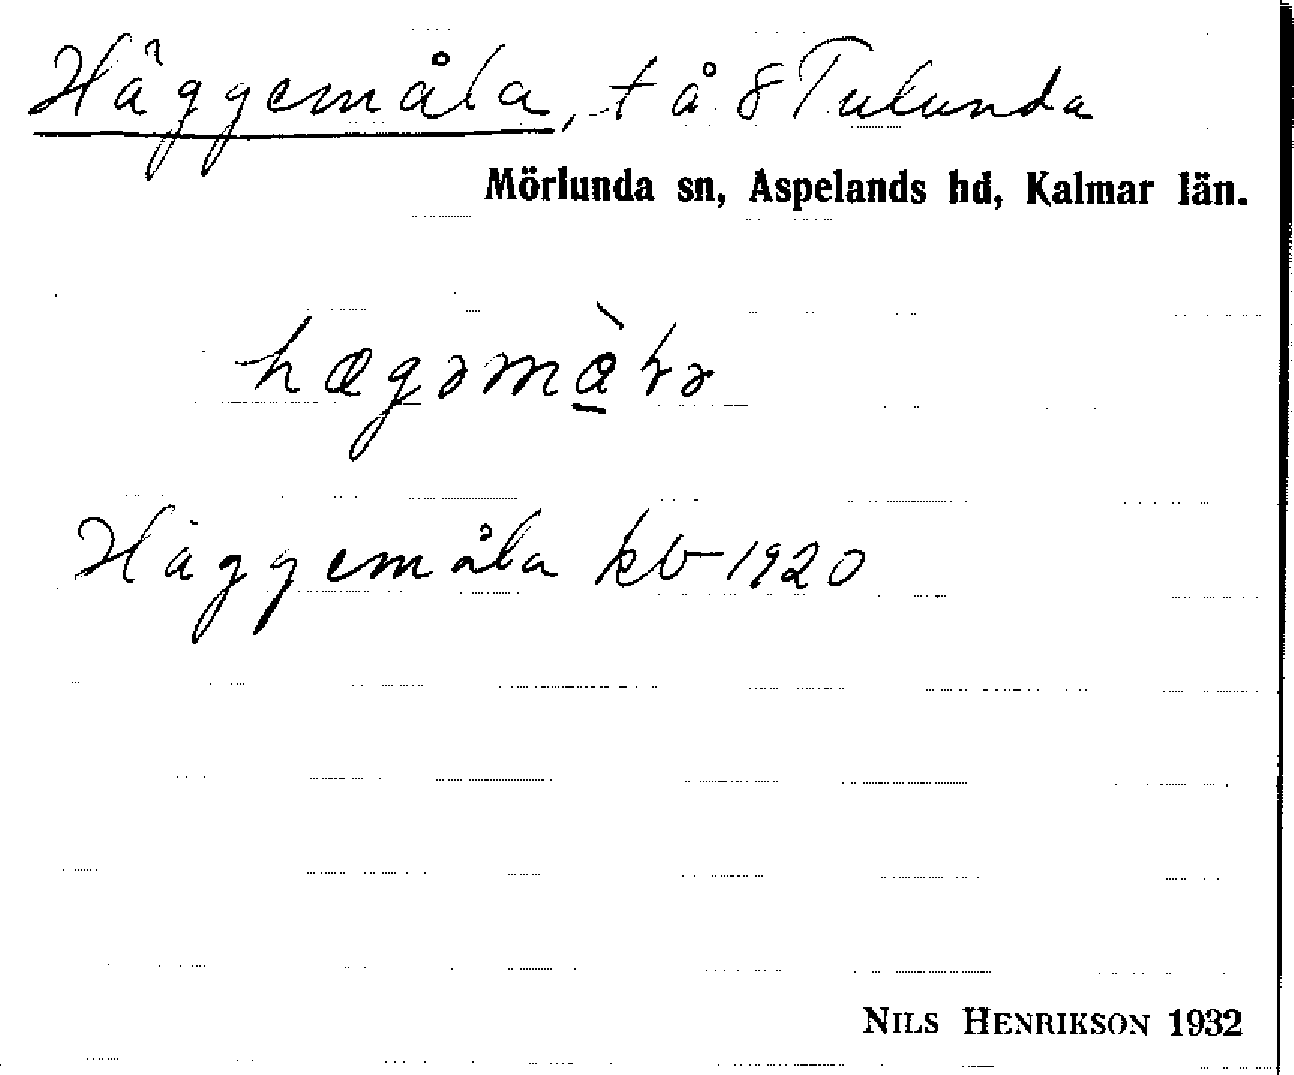 Häggemåla, t å 8 Tulunda
Mörlunda sn, Aspelands hd, Kalmar län.
Häggemåla kb 1920
NILS HENRIKSON 1932